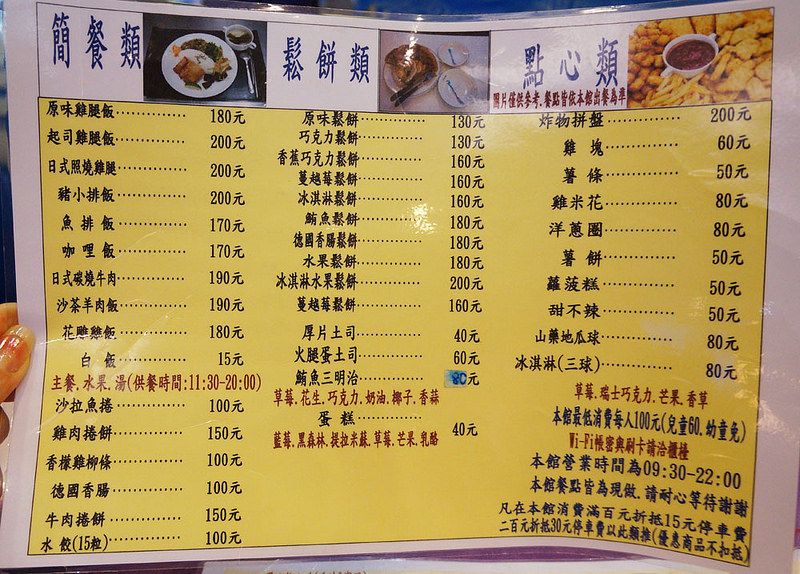 簡餐類
原味雞腿飯 180元
起司雞腿飯 200元
日式照燒雞腿 200元
豬小排飯 200元
魚排飯 170元
咖哩飯 170元
日式碳燒牛肉 190元
沙茶羊肉飯 190元
花雕雞飯 180元
白飯 15元
主餐.水果.湯(供餐時間:11:30-20:00)
沙拉魚捲 100元
雞肉捲餅 150元
香檬雞柳條 100元
德國香腸 100元
牛肉捲餅 150元
水餃(15粒) 100元
鬆餅類
原味鬆餅 130元
巧克力鬆餅 130元
香蕉巧克力鬆餅 160元
蔓越莓鬆餅 160元
冰淇淋鬆餅 160元
鮪魚鬆餅 180元
德國香腸鬆餅 180元
水果鬆餅 180元
冰淇淋水果鬆餅 200元
蔓越莓鬆餅 160元
厚片土司 40元
火腿蛋土司 60元
鮪魚三明治 80元
草莓.花生.巧克力.奶油.椰子.香蒜
蛋糕 40元
藍莓.黑森林.提拉米蘇.草莓.芒果.乳酪
點心類
圖片僅供參考.餐點皆依本館出餐為準
炸物拼盤 200元
雞塊 60元
薯條 50元
雞米花 80元
洋蔥圈 80元
薯餅 50元
蘿菠糕 50元
甜不辣 50元
山藥地瓜球 80元
冰淇淋(三球) 80元
草莓.瑞士巧克力.芒果.香草
本館最低消費每人100元(兒童60.幼童免)
Wi-Fi帳密與刷卡請洽櫃檯
本館營業時間為09:30-22:00
本館餐點皆為現做.請耐心等待謝謝
凡在本館消費滿百元折抵15元停車費
二百元折抵30元停車費以此類推(優惠商品不扣抵)